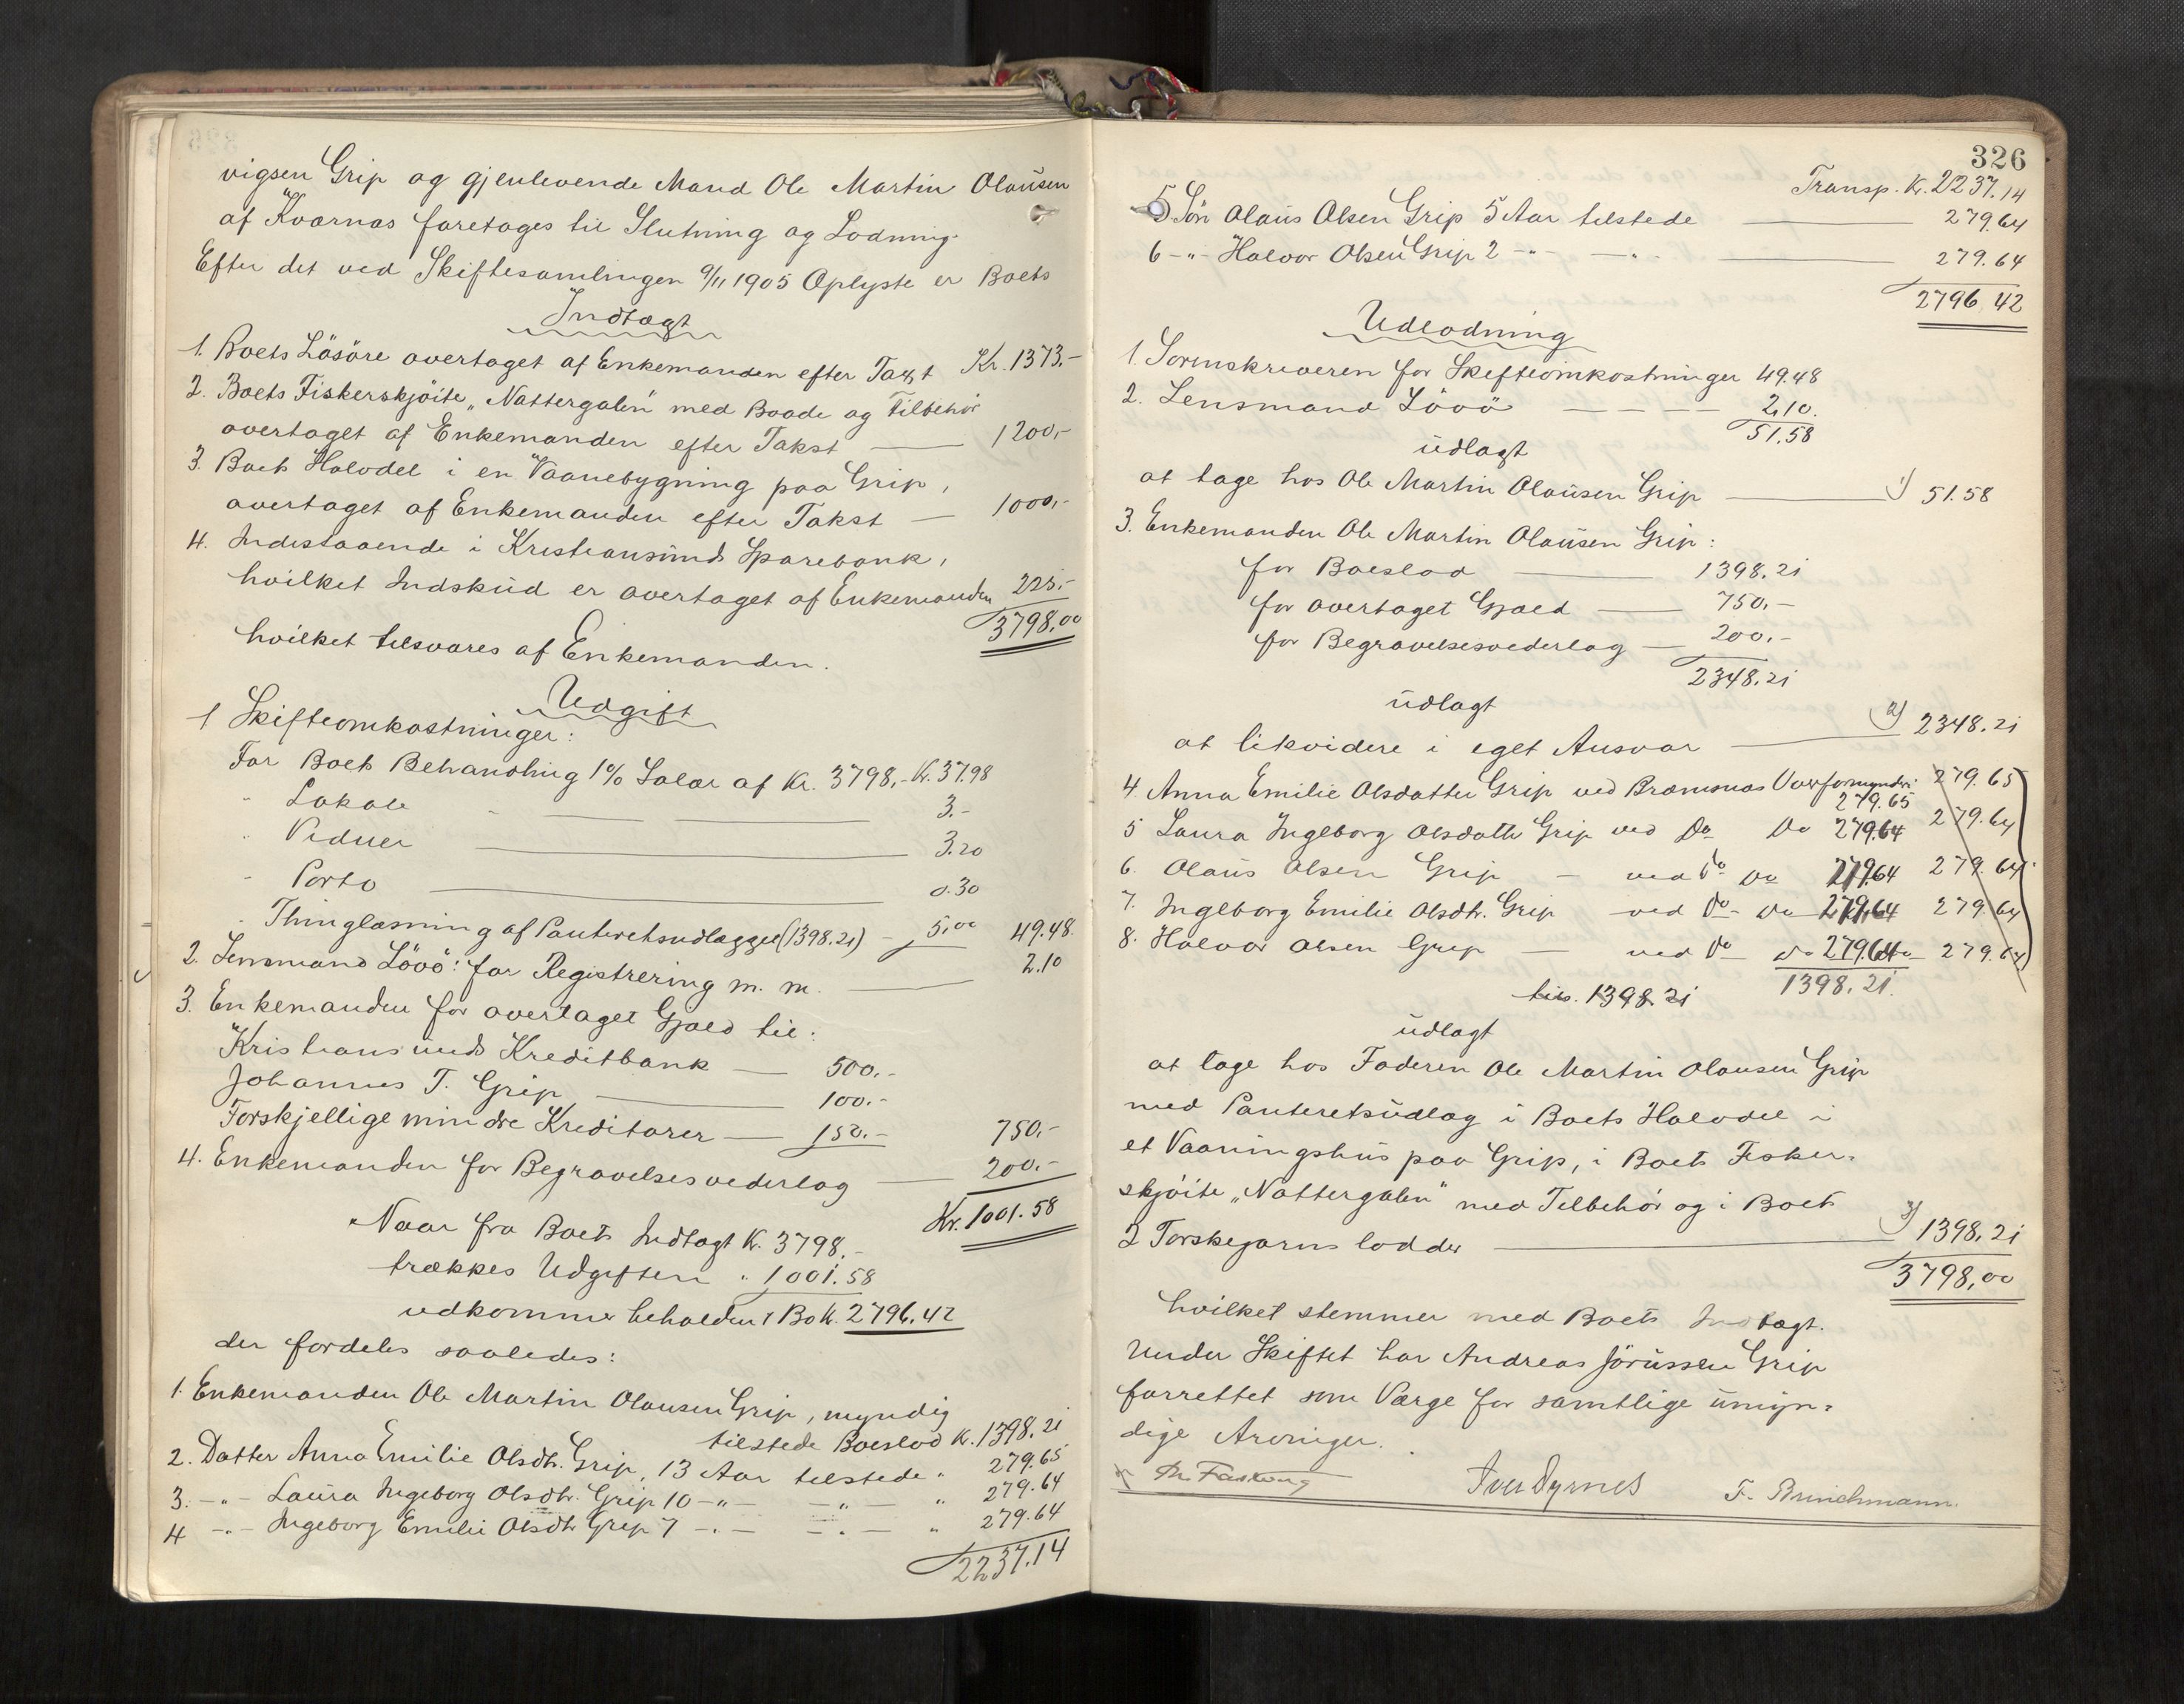 vigsen Grip og gjenlevende Mand Ole Martin Olausen
af Kvernæs foretages til Slutning og Lodning.
Efter det ved Skiftesamlingen 9/11 1905 Oplyste er Boets
Indtægt
1. Boets Lösöre overtaget af Enkemanden efter Taxt Kr. 1373.-
2. Boets Fiskerskjöite „Nattergalen" med Baade og Tilbehör
overtaget af Enkemanden efter Takst — 1200,-
3. Boets Halvdel i en Vaanebygning paa Grip,
overtaget af Enkemanden efter Takst — 1000,-
4. Indestaaende i Kristiansunds Sparebank,
hvilket Indskud er overtaget af Enkemanden 225.-
3798,00
hvilket tilsvares af Enkemanden.
Udgift
1 Skifteomkostninger:
For Boets Behandling 1% Salær af Kr. 3798,- Kr. 37.98
" Lokale — 3.-
" Vidner — 3.20
" Porto — 0.30
" Thinglæsning af Panteretsudlægget (1398.21) - 5,00 49.48
2. Lensmand Lövö: for Registrering m. m. — 2.10
3. Enkemanden for overtaget Gjæld til:
Kristiansunds Kreditbank — 500.-
Johannes T. Grip — 100.-
Forskjellige mindre Kreditorer — 150.- 750.-
4. Enkemanden for Begravelsesvederlag — 200.-
Kr. 1001.58
Naar fra Boets Indtægt Kr. 3798.-
trækkes Udgiften " 1001.58
udkommer beholden Bo Kr. 2796.42
der fordeles saaledes:
1. Enkemanden Ole Martin Olausen Grip, myndig
tilstede Boeslod Kr. 1398.21
2. Datter Anna Emilie Olsdtr. Grip, 13 Aar tilstede " 279.65
3. -"- Laura Ingeborg Olsdtr. Grip 10 -"- -"- " 279.64
4 -"- Ingeborg Emilie Olsdtr Grip 7 -"- -"- " 279.64
2237.14
326
Transp. Kr. 2237.14
5 Sön Olaus Olsen Grip 5 Aar tilstede — 279.64
6 -"- Halvor Olsen Grip 2 -"- -"- — 279.64
2796 42
Udlodning
1. Sorenskriveren for Skifteomkostninger 49.48
2. Lensmand Lövö — — — 2,10.
51.58
udlagt
at tage hos Ole Martin Olausen Grip — 1) 51.58
3. Enkemanden Ole Martin Olausen Grip:
for Boeslod — 1398.21
for overtaget Gjæld — 750,-
for Begravelsesvederlag — 200.-
2348.21
udlagt
at likvidere i eget Ansvar — 2) 2348.21
4. Anna Emilie Olsdatter Grip ved Bremsnæs Overformynderi 279.65 279.65
5 Laura Ingeborg Olsdatter Grip ved Do Do 279.64 279.64
6. Olaus Olsen Grip — ved Do Do 279.64 279.64
7. Ingeborg Emilie Olsdtr. Grip ved Do - Do 279.64 279.64
8. Halvor Olsen Grip — ved Do Do 279.64 279.64
tils. 1398.21 1398.21.
udlagt
at tage hos Faderen Ole Martin Olausen Grip
med Panteretsudlæg i Boets Halvdel i
et Vaaningshus paa Grip, i Boets Fisker-
skjöite „Nattergalen" med Tilbehör og i Boets
2 Torskegarns lodder — 3) 1398.21
3798,00
hvilket stemmer med Boets Indtægt.
Under Skiftet har Andreas Jörussen Grip
forrettet som Værge for samtlige umyn-
dige Arvinger.
Iver Dyrnes F. Brinchmann.